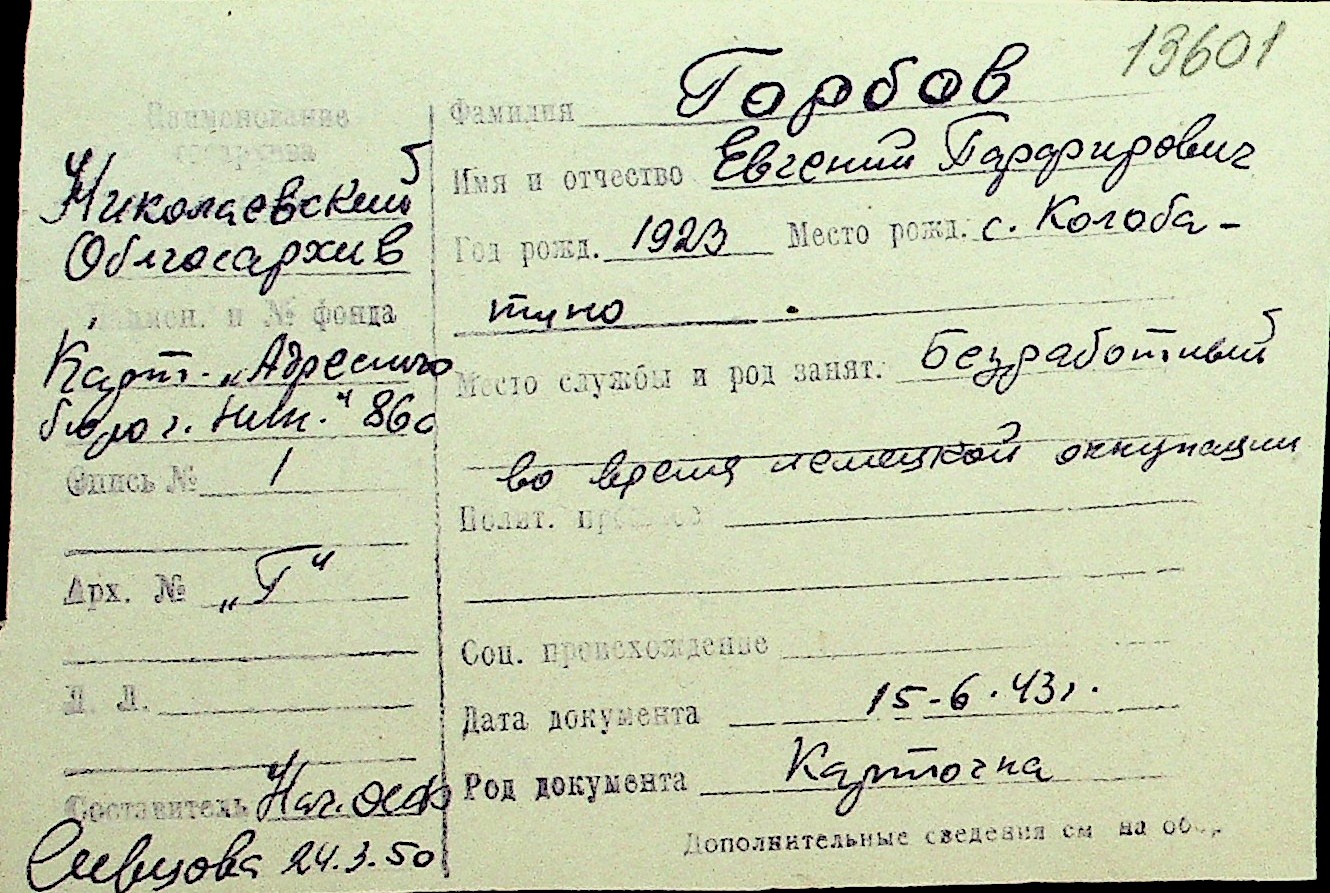 13601
Наименование
госархива
Николаевский
Облгосархив
Наимен. и № фонда
Карт. „Адресного
бюро г. Ник." 86с
Опись № 1
Арх. № „Г"
Л. Л.
Составитель Нач. ОСФ
24.3.50
Фамилия Горбов
Имя и отчество Евгений Парфирович
Год рожд. 1923 Место рожд. с. Колоба-
тино
Место службы и род занят. Безработный
во время немецкой оккупации
Полит. прошлое
Соц. происхождение
Дата документа 15-6.43г.
Род документа Карточка
Дополнительные сведения см на обор.